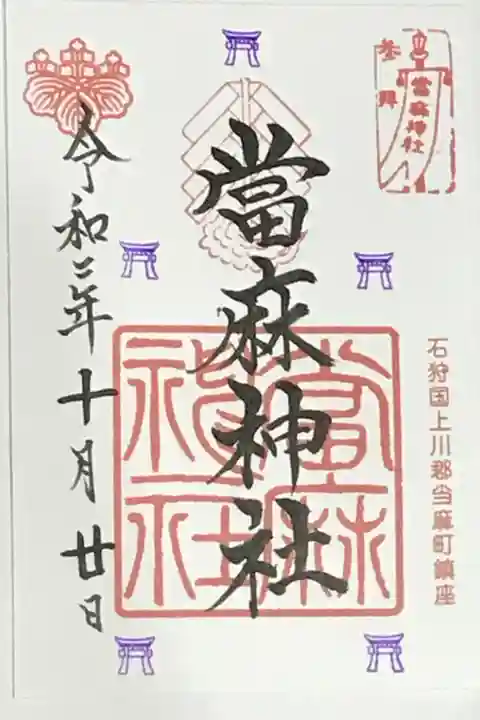 參拜
當麻神社
石狩国上川郡当麻町鎮座
當麻神社
當麻神社
令和二年十月廿日